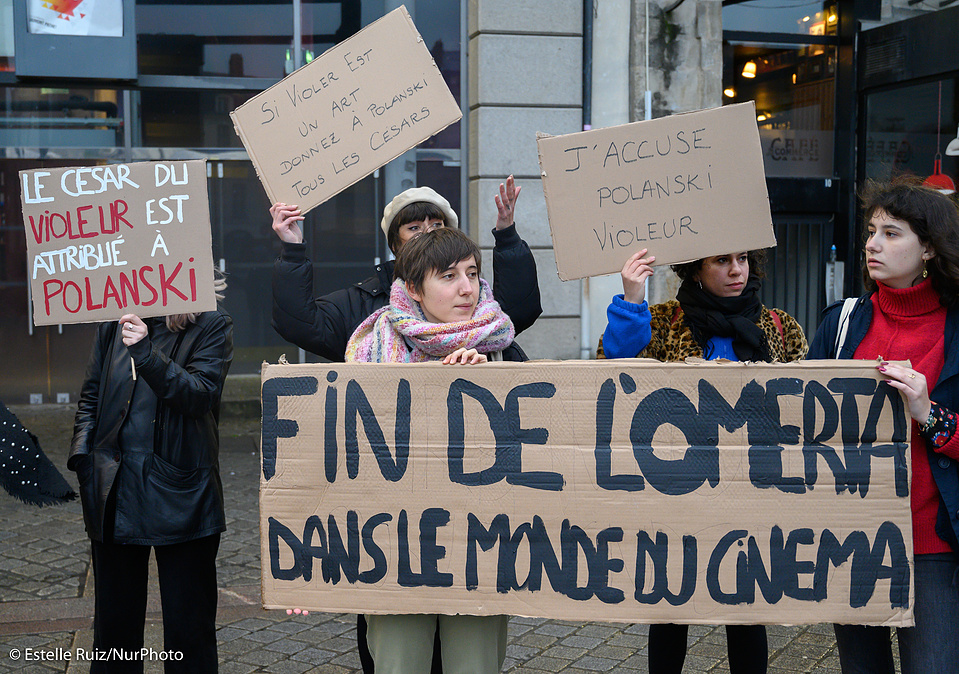 SI VIOLER EST
UN ART
DONNEZ A POLANSKI
TOUS LES CESARS
J'ACCUSE
POLANSKI
VIOLEUR
LE CESAR DU
VIOLEUR EST
ATTRIBUÉ À
POLANSKI
FIN DE L'OMERTA
DANS LE MONDE DU CINEMA
© Estelle Ruiz/NurPhoto